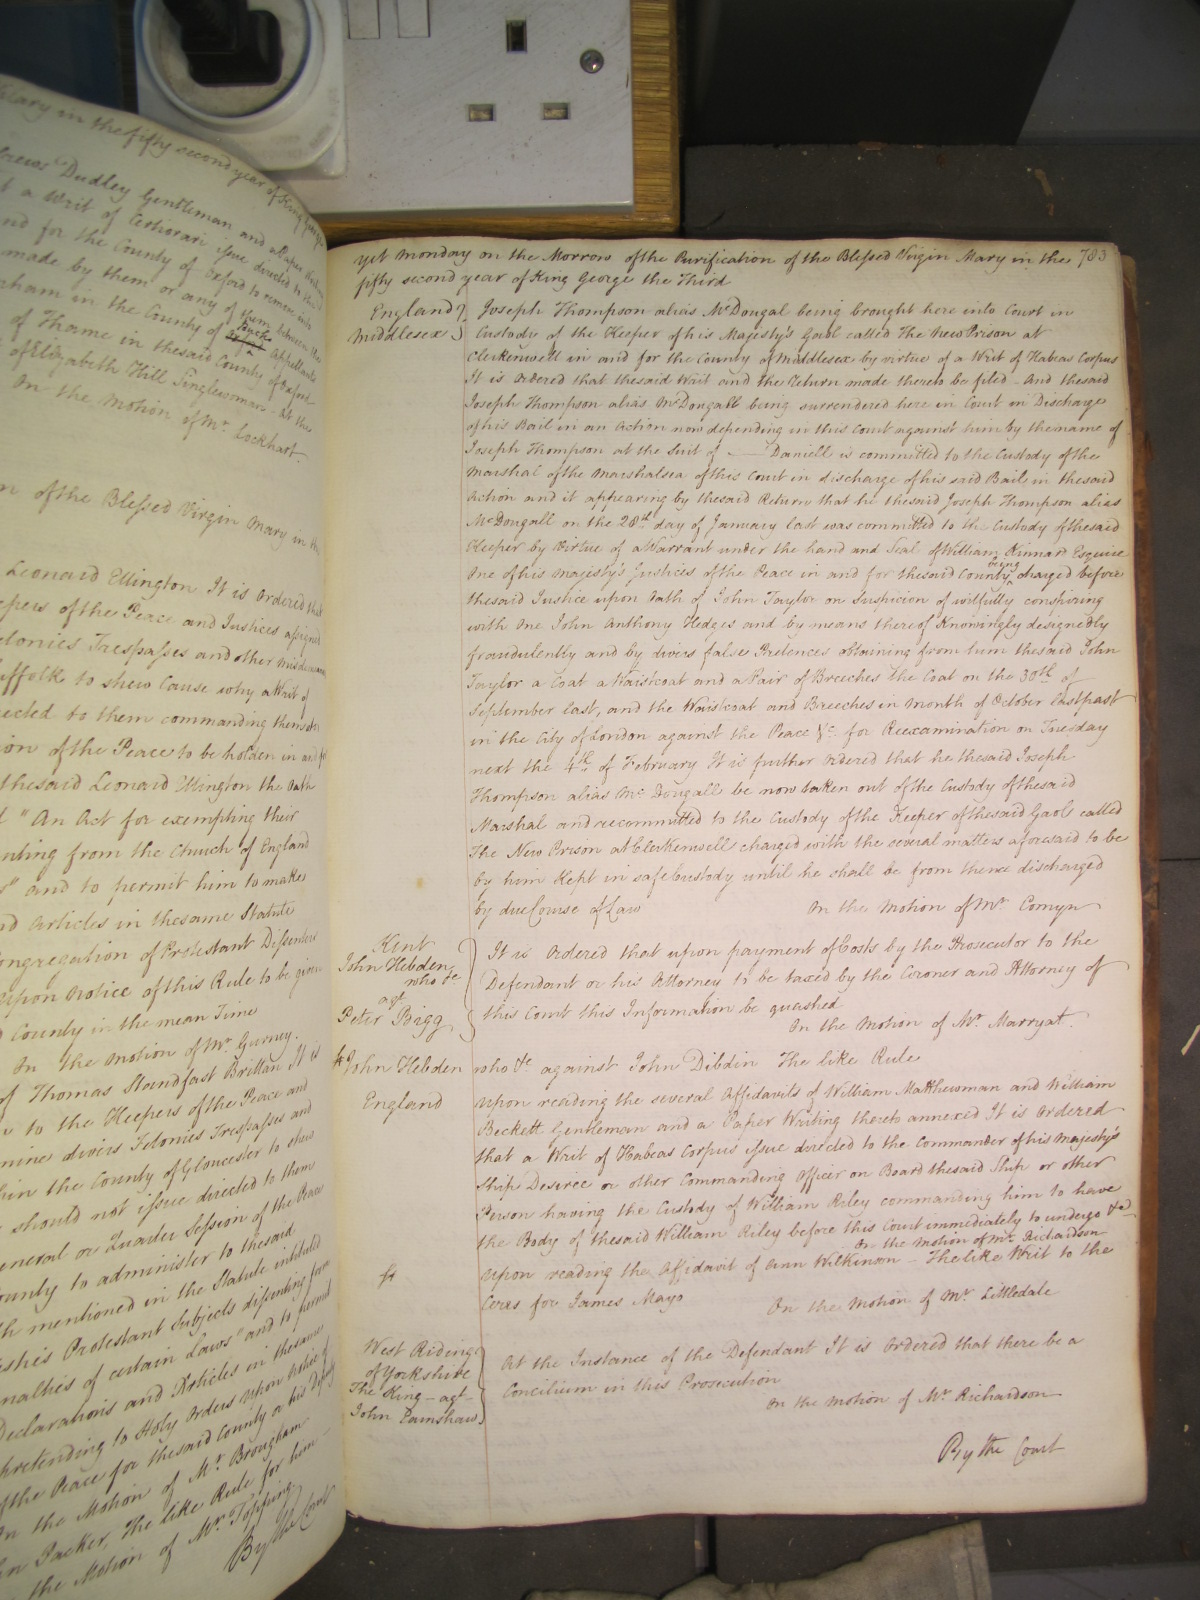 Mary in the fifty second year of King George
Dudley Gentleman and a Paper
a Writ of Certiorari issue directed to the
and for the County of Oxford to remove into
made by them or any of them between the
in the County of Bucks Appellants
of Thame in the said County of Oxford
of Elizabeth Hill Singlewoman - At the
On the Motion of Mr. Lockhart
of the Blessed Virgin Mary in the
Leonard Ellington It is Ordered that
Keepers of the Peace and Justices assigned
Felonies Trespasses and other misdemeanors
Suffolk to shew Cause why a Writ of
directed to them commanding them
of the Peace to be holden in and
the said Leonard Ellington the Oath
"An Act for exempting their
from the Church of England
" and to permit him to make
Articles in the same Statute
Congregation of Protestant Dissenters
upon Notice of this Rule to be given
County in the mean Time
On the Motion of Mr. Gurney.
of Thomas Standfast Brittan It is
to the Keepers of the Peace and
divers Felonies Trespasses and
the County of Gloucester to shew
should not issue directed to them
General or Quarter Session of the Peace
County to administer to the said
mentioned in the Statute intituled
Protestant Subjects dissenting from
of certain Laws" and to permit
Declarations and Articles in the same
pretending to Holy Orders upon Notice of
of the Peace for the said County or his Deputy
On the Motion of Mr. Brougham
Packer, The like Rule for him -
the Motion of Mr. Topping
By the Court
yet Monday on the Morrow of the Purification of the Blessed Virgin Mary in the 783
fifty second year of King George the Third
England } Joseph Thompson alias McDougal being brought here into Court in
Middlesex } Custody of the Keeper of his Majesty's Gaol called The New Prison at
Clerkenwell in and for the County of Middlesex by virtue of a Writ of Habeas Corpus
It is Ordered that the said Writ and the Return made thereto be filed - And the said
Joseph Thompson alias McDougall being surrendered here in Court in Discharge
of his Bail in an Action now depending in this Court against him by the name of
Joseph Thompson at the Suit of —— Daniell is committed to the Custody of the
Marshal of the Marshalsea of this Court in discharge of his said Bail in the said
Action and it appearing by the said Return that he the said Joseph Thompson alias
McDougall on the 28th day of January last was committed to the Custody of the said
Keeper by Virtue of a Warrant under the hand and Seal of William Kinnard Esquire
One of his Majesty's Justices of the Peace in and for the said County being charged before
the said Justice upon Oath of John Taylor on Suspicion of wilfully conspiring
with One John Anthony Hedges and by means thereof Knowingly designedly
fraudulently and by divers false Pretences obtaining from him the said John
Taylor a Coat a Waistcoat and a Pair of Breeches the Coat on the 30th of
September last, and the Waistcoat and Breeches in month of October last past
in the City of London against the Peace &c. for Reexamination on Tuesday
next the 4th of February It is further Ordered that he the said Joseph
Thompson alias McDougall be now taken out of the Custody of the said
Marshal and recommitted to the Custody of the Keeper of the said Gaol called
The New Prison at Clerkenwell charged with the several matters aforesaid to be
by him Kept in safe Custody until he shall be from thence discharged
by due Course of Law On the Motion of Mr Comyn
Kent
John Hebden
who &c
agt
Peter Bigg
It is Ordered that upon payment of Costs by the Prosecutor to the
Defendant or his Attorney to be taxed by the Coroner and Attorney of
this Court this Information be quashed
On the Motion of Mr. Marryat.
John Hebden who &c against John Dibdin The like Rule
England Upon reading the several Affidavits of William Matthewman and William
Beckett Gentleman and a Paper Writing thereto annexed It is Ordered
that a Writ of Habeas Corpus issue directed to the Commander of his Majesty's
Ship Desiree or other Commanding Officer on Board the said Ship or other
Person having the Custody of William Riley commanding him to have
the Body of the said William Riley before this Court immediately to undergo &c
On the Motion of Mr. Richardson
Upon reading the Affidavit of Ann Wilkinson - The like Writ to the
Ceres for James Mayo On the Motion of Mr Littledale
West Riding
of Yorkshire
The King - agt
John Earnshaw
At the Instance of the Defendant It is Ordered that there be a
Concilium in this Prosecution
On the Motion of Mr. Richardson
By the Court